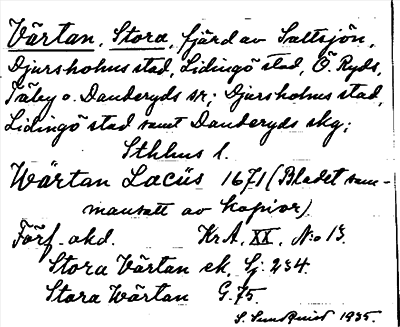 Värtan, Stora, fjärd av Saltsjön,
Djursholms stad, Lidingö stad, Ö. Ryds,
Täby o. Danderyds sn; Djursholms stad,
Lidingö stad samt Danderyds skg;
Sthlms l.
Wärtan Lacüs 1671 (Bladet sam-
mansatt av kopior)
Förf. okd. KrA, XX, No 13.
Stora Värtan ek. Sj. 234.
Stora Wärtan G. 75.
S. Sundquist 1935.